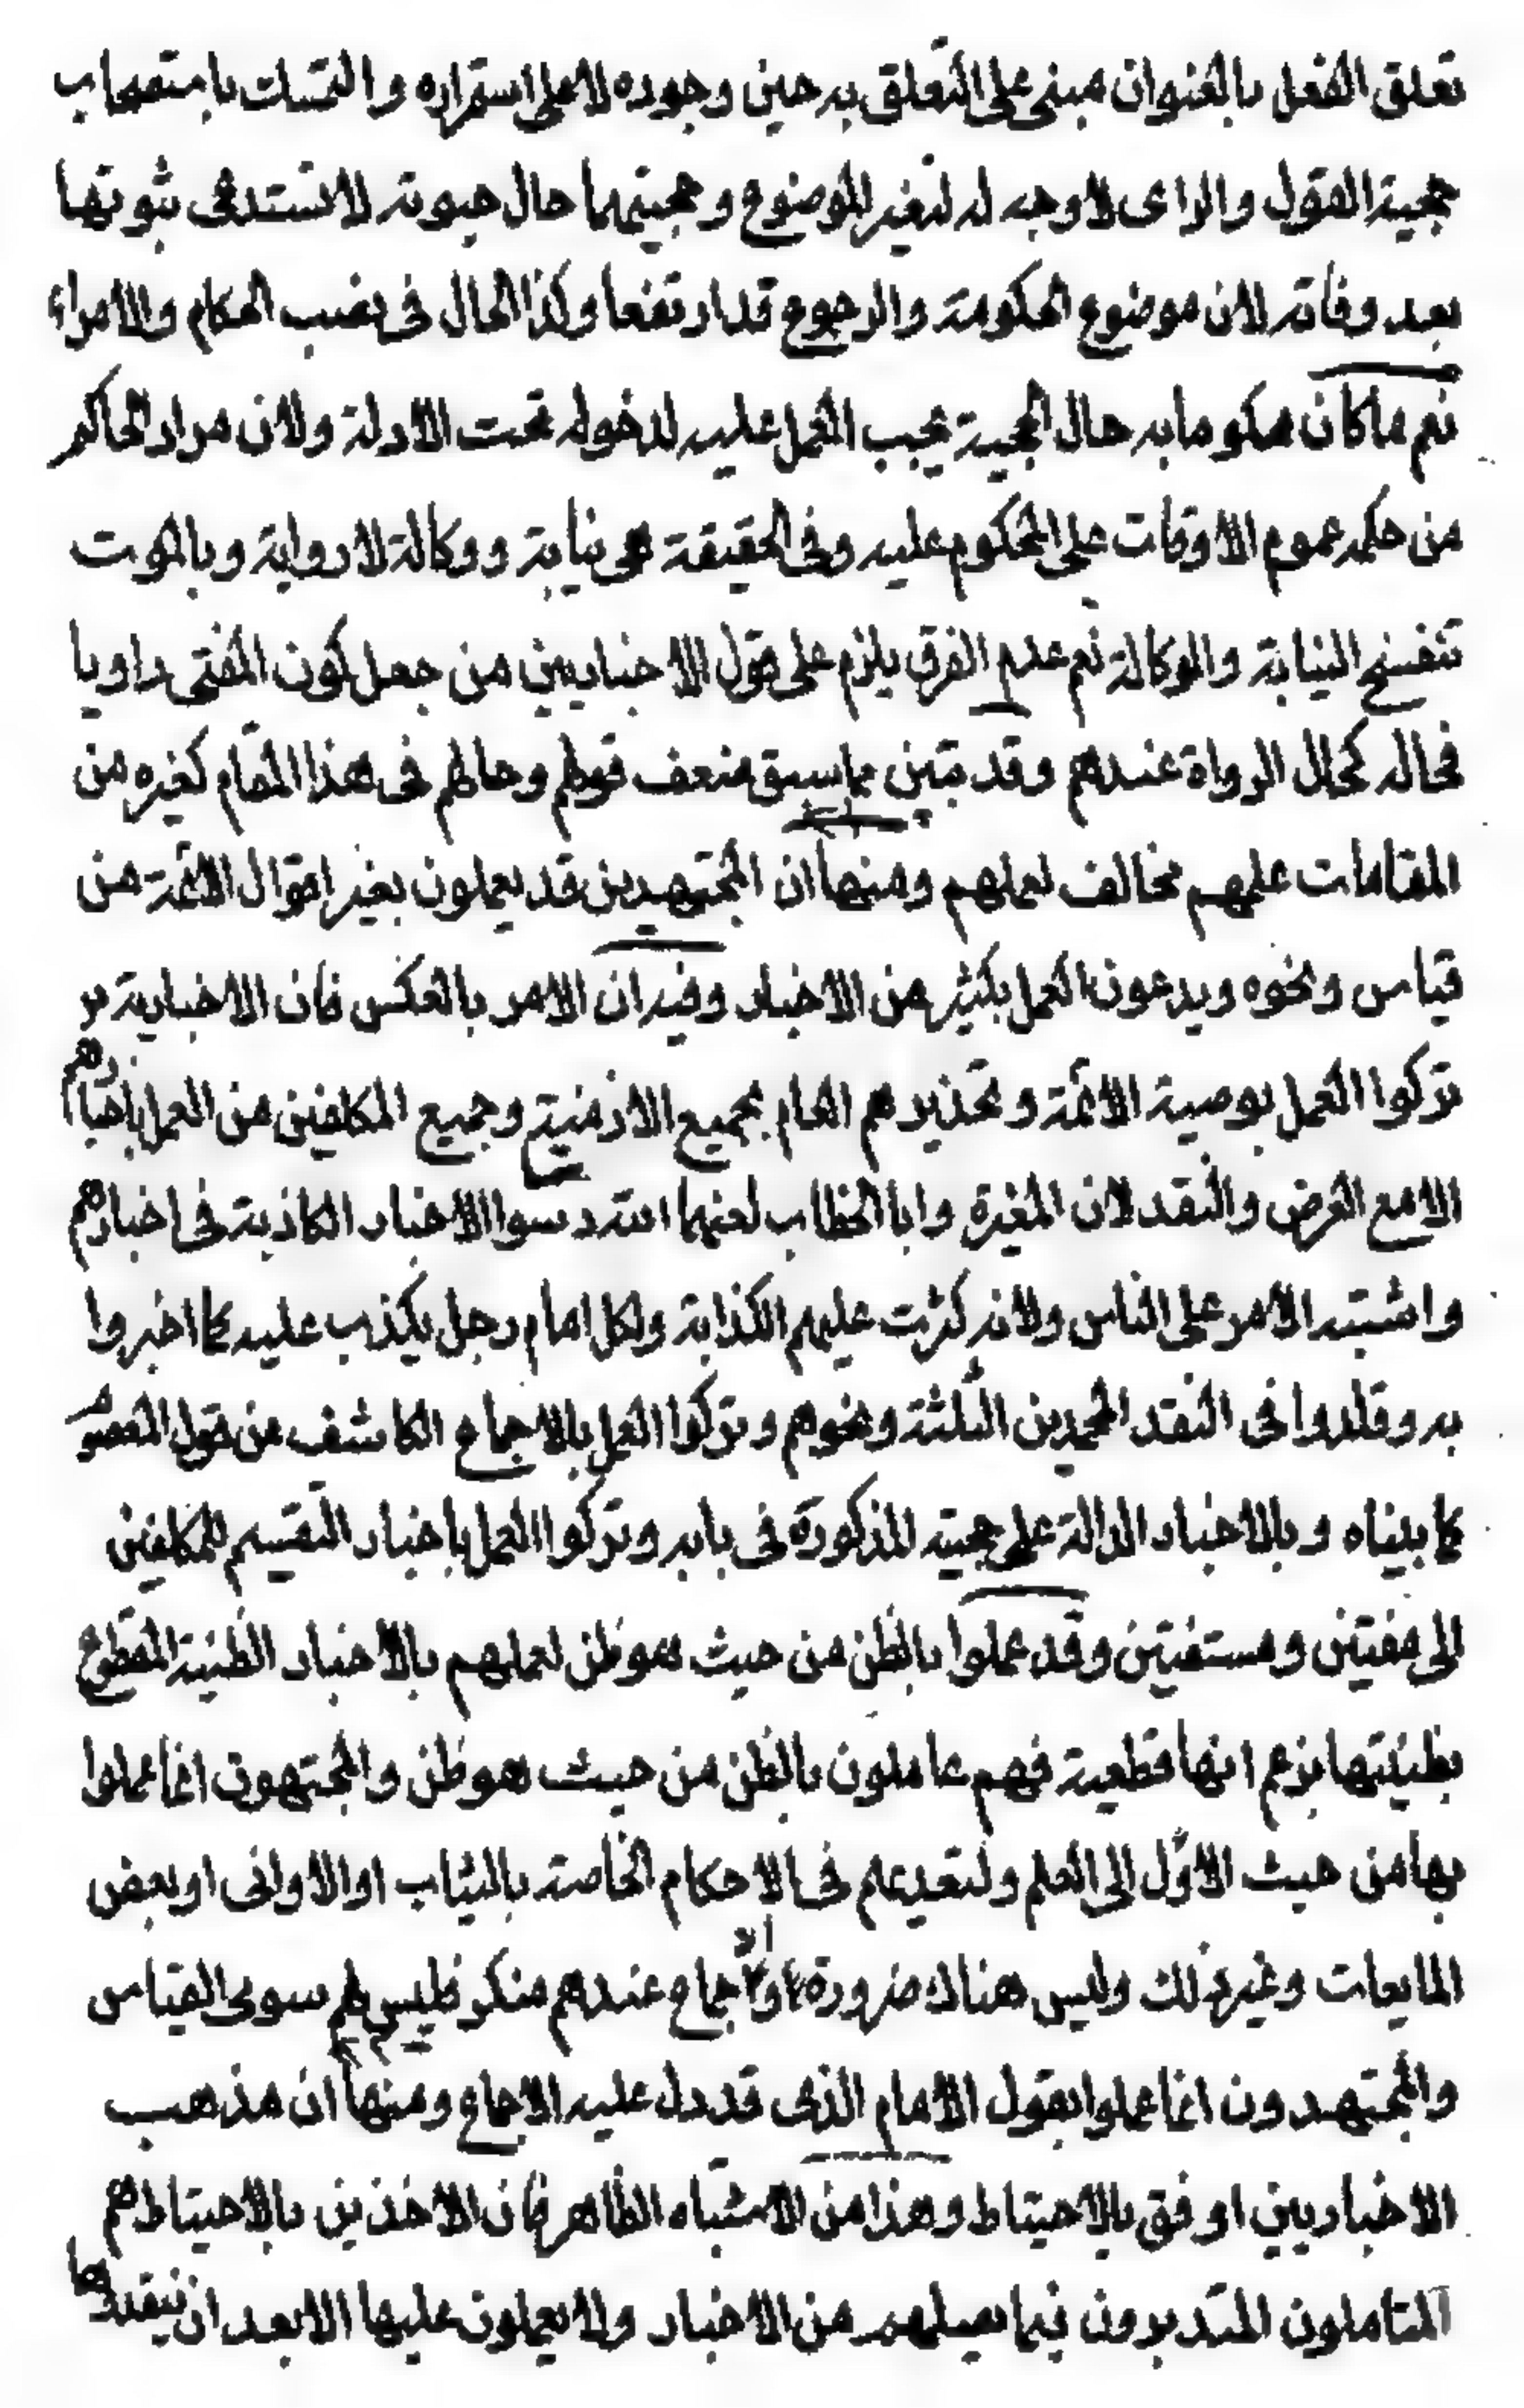 تعلق الفعل بالعنوان مبنى على التعلق به حين وجوده لا على استمراره والتمسك باستصحاب
حجية القول والراى لا وجه له لتغير الموضوع وحجيتهما حال حيوته لا تستدعى ثبوتها
بعد وفاته لان موضوع الحكومة والرجوع قد ارتفعا وكذا الحال فى نصب الحكام والامراء
نعم ما كان محكوما به حال الحجية يجب العمل عليه لدخوله تحت الادلة ولان مراد الحاكم
من حكمه عموم الاوقات على المحكوم عليه وفى الحقيقة هى نيابة ووكالة لا رواية وبالموت
تنفسخ النيابة والوكالة نعم عدم الفرق يلزم على قول الاخباريين من جعل كون المفتى راويا
فحاله كحال الرواة عندهم وقد تبين مما سبق ضعف قولهم وحالهم فى هذا المقام كغيره من
المقامات علمهم مخالف لعملهم ومنها ان المجتهدين قد يعملون بغير اقوال الائمة من
قياس ونحوه ويدعون العمل بكثير من الاخبار وفيه ان الامر بالعكس فان الاخبارية
تركوا العمل بوصية الائمة وتحذيرهم العام بجميع الازمنة وجميع المكلفين من العمل باخبارهم
الا مع العرض والنقد لان المغيرة وابا الخطاب لعنهما الله دسوا الاخبار الكاذبة فى اخبارهم
واشتبه الامر على الناس ولانه كثرت عليهم الكذابة ولكل امام رجل يكذب عليه كما اخبروا
به وقلدوا فى النقد المحمدين الثلثة ونحوهم وتركوا العمل بالاجماع الكاشف عن قول المعصوم
كما بيناه وبالاخبار الدالة على حجيته المذكورة فى بابه وتركوا العمل باخبار التقسيم للمكلفين
الى مفتين ومستفتين وقد عملوا بالظن من حيث هو ظن لعملهم بالاخبار الظنية المقطوع
بظنيتها بزعم انها قطعية فهم عاملون بالظن من حيث هو ظن والمجتهدون انما عملوا
بها من حيث الاول الى العلم ولتعديهم فى الاحكام الخاصة بالثياب او الاوانى او بعض
المايعات وغير ذلك وليس هناك ضرورة والاجماع عندهم منكر فليس لهم سوى القياس
والمجتهدون انما عملوا بقول الامام الذى قد دل عليه الاجماع ومنها ان مذهب
الاخباريين اوفق بالاحتياط وهذا من الاشتباه الظاهر فان الاخذين بالاحتياط هم
المتاملون المتدبرون فيما يصلهم من الاخبار ولا يعملون عليها الا بعد ان ينقدوها